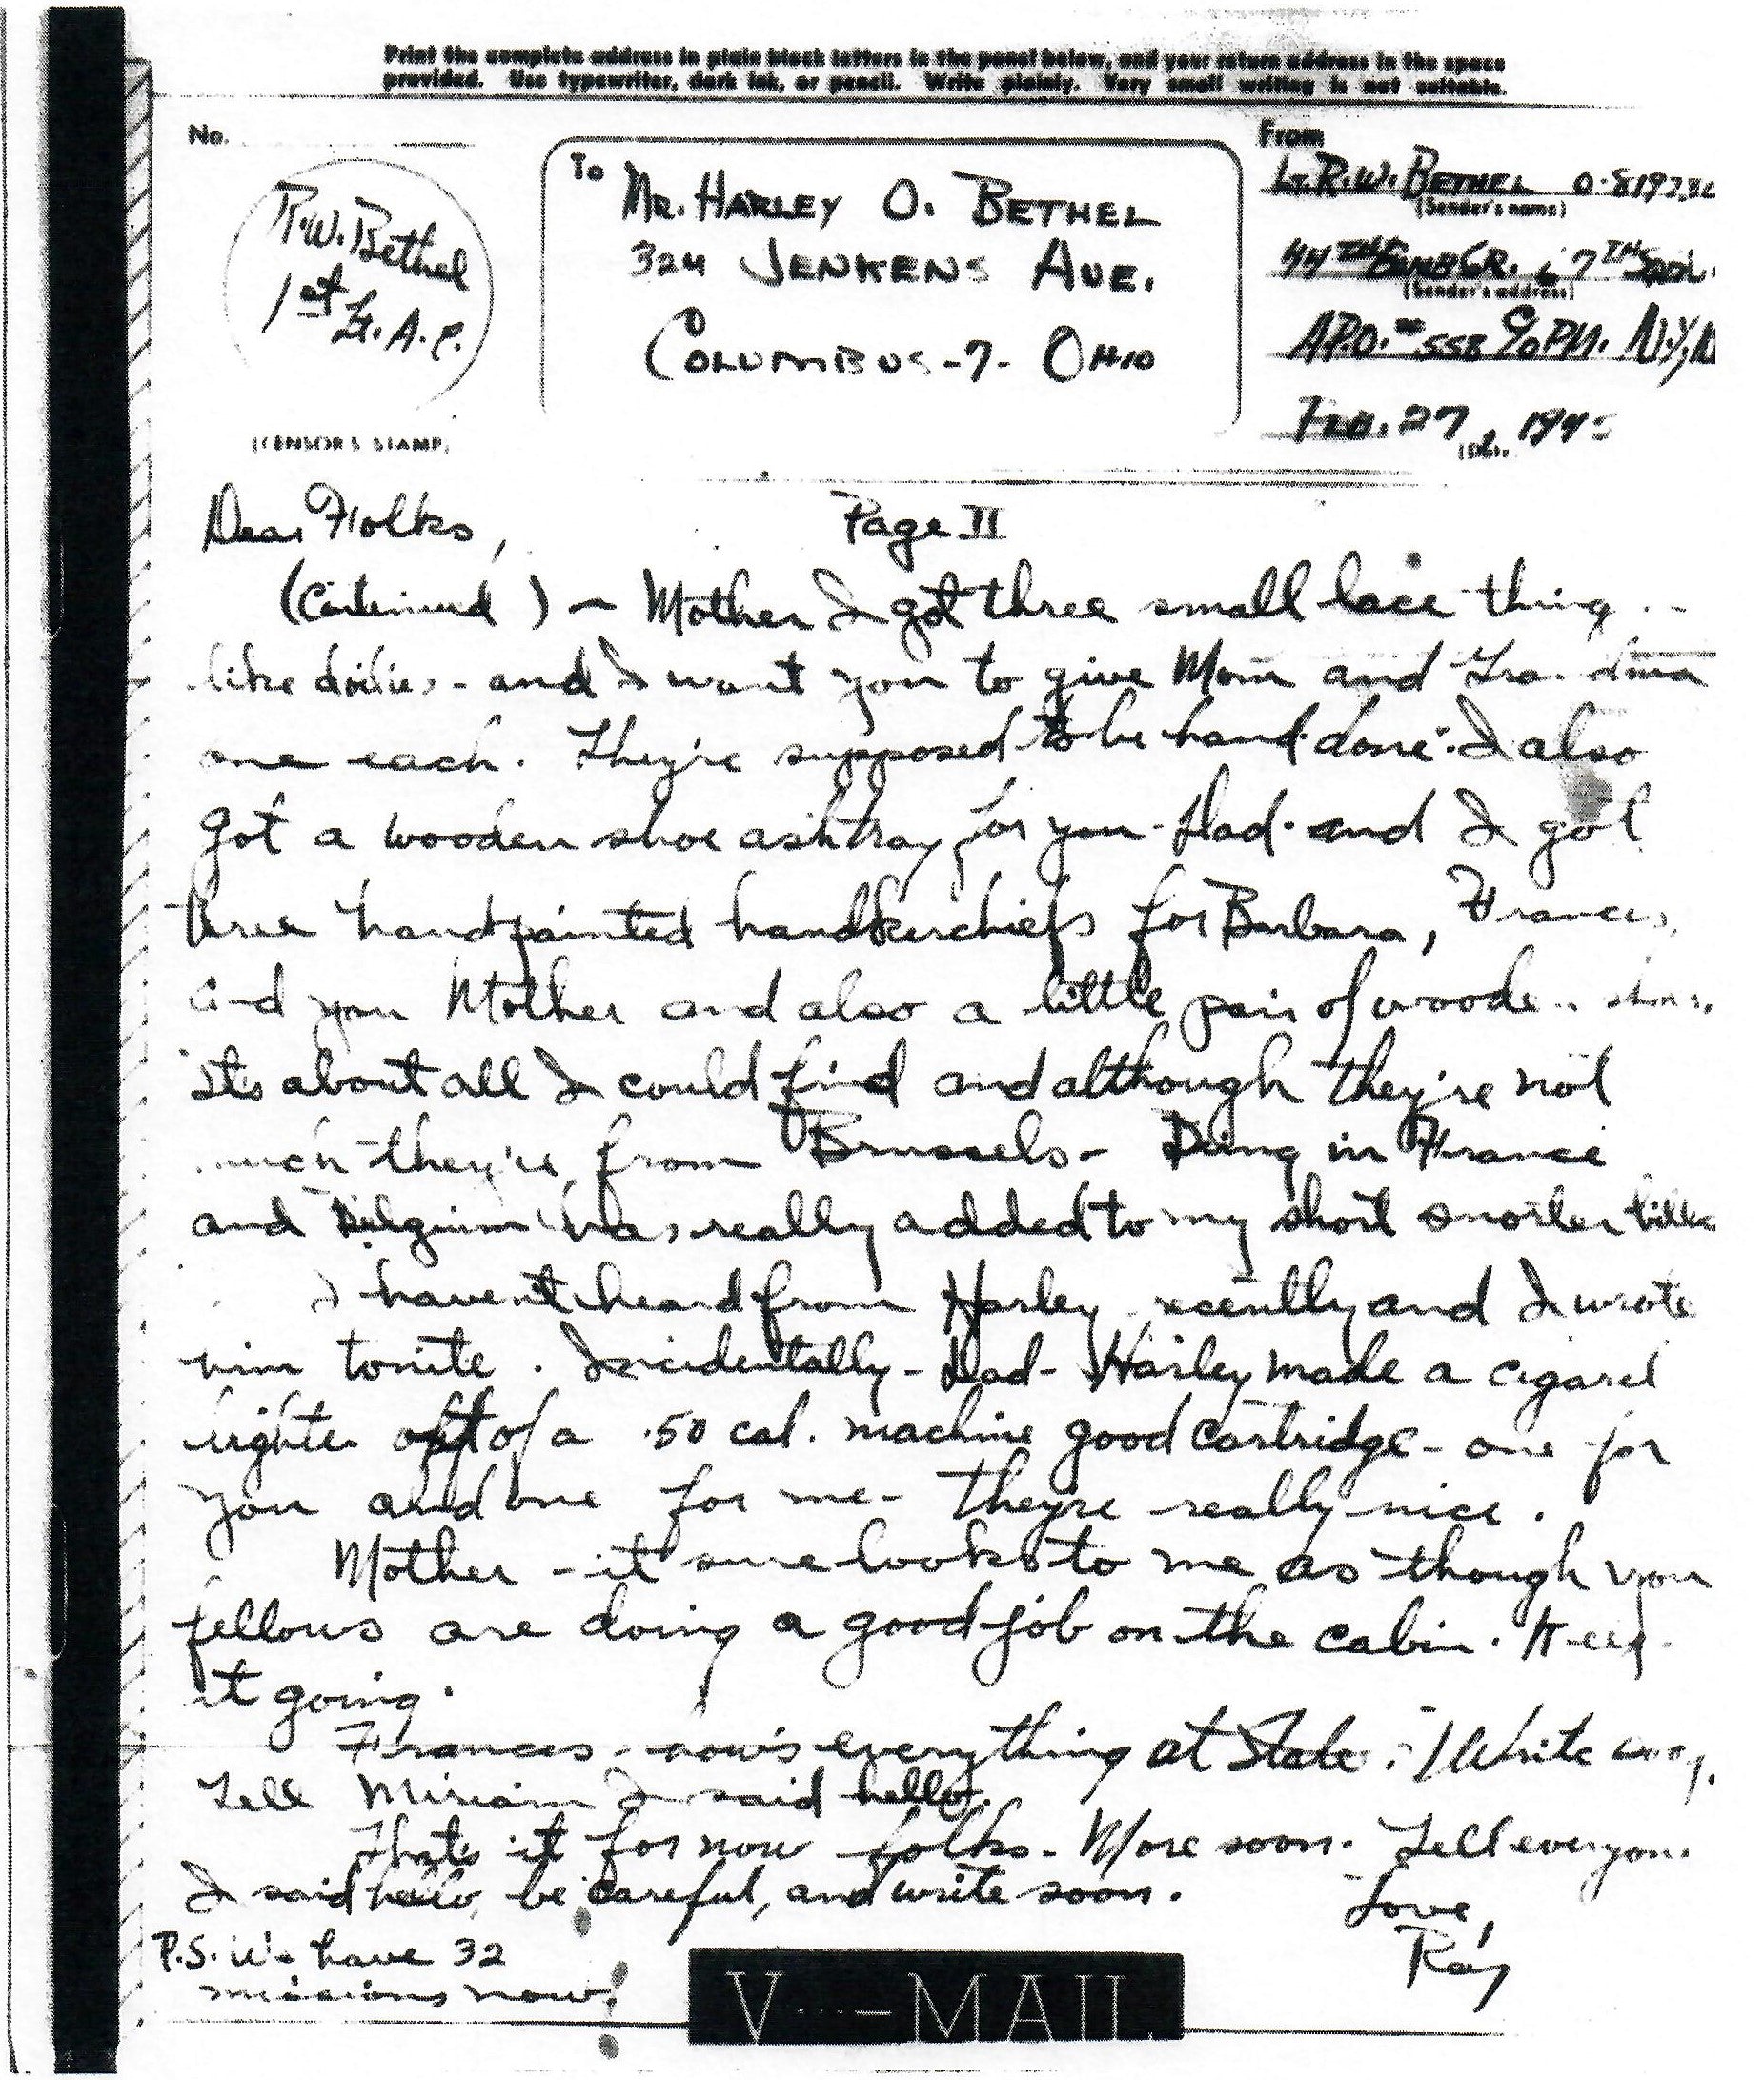 Print the complete address in plain block letters in the panel below, and your return address in the space
provided. Use typewriter, dark ink, or pencil. Write plainly. Very small writing is not suitable.
No.
R.W. Bethel
1st Lt. A.C.
(CENSOR'S STAMP)
To
Mr. Harley O. Bethel
324 Jenkens Ave.
Columbus-7-Ohio
From
Lt. R.W. Bethel
(Sender's name)
44th Bomb Gr. 67th Sqdn.
(Sender's address)
A.P.O. #558 c/o P.M. N.Y.,
Feb. 27, 194
Dear Folks, Page II
(Continued) - Mother I got three small lace thing
like doilies - and I want you to give Mom and
one each. They're supposed to be hand done. I also
got a wooden shoe ashtray for you - Dad - and I got
three handpainted handkerchiefs for Barbara, Frances,
and you Mother and also a little pair of shoes.
It's about all I could find and although they're not
much they're from Brussels - Being in France
and Belgium has really added to my short snorter bills
I haven't heard from Harley recently and I wrote
him tonite. Incidentally - Dad - Harley made a cigaret
lighter out of a .50 cal. machine good cartridge - one for
you and one for me - they're really nice.
Mother - it sure looks to me as though you
fellows are doing a good job on the cabin. Keep
it going.
Frances - how's everything at State? Write
Tell Miriam I said hello.
That's it for now folks - More soon. Tell everyone
I said hello, be careful, and write soon.
Love,
Ray
P.S. We have 32
missions now!
V-MAIL